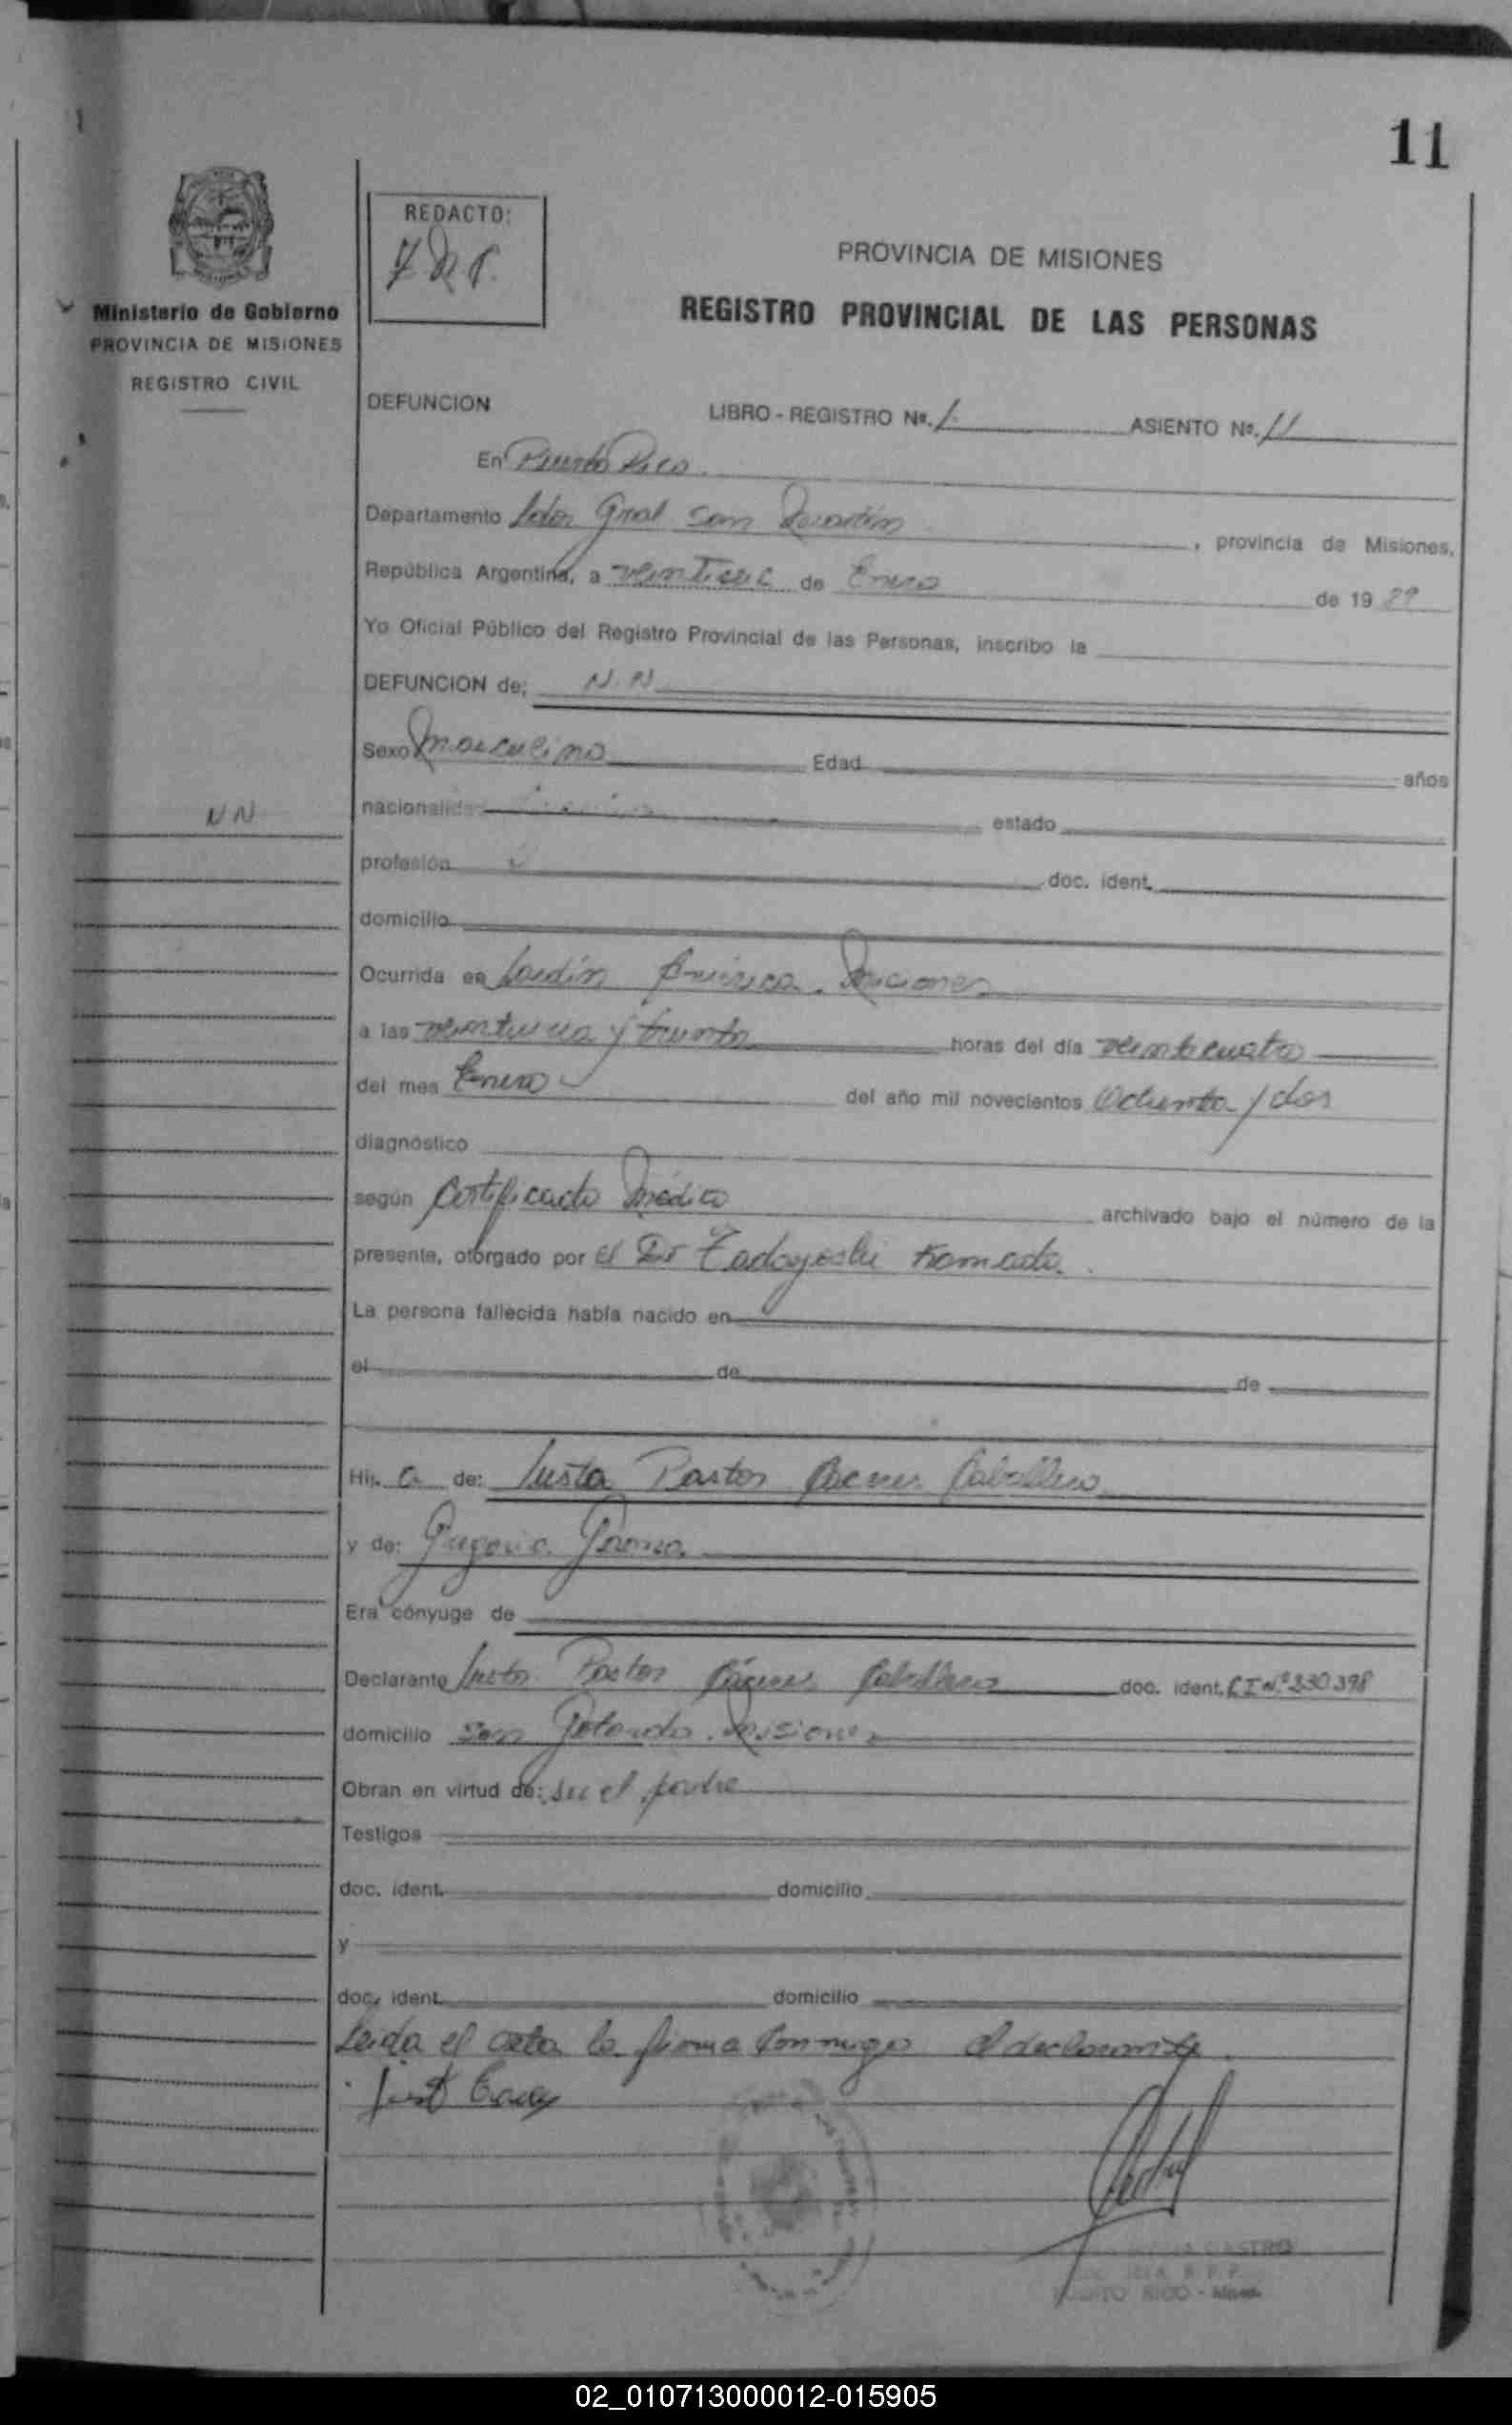 11
REDACTO:
Ministerio de Gobierno
PROVINCIA DE MISIONES
REGISTRO CIVIL
PROVINCIA DE MISIONES
REGISTRO PROVINCIAL DE LAS PERSONAS
DEFUNCION LIBRO - REGISTRO Nº. 1 ASIENTO Nº. 11
En Puerto Rico
Departamento Ldor Gral San Martín, provincia de Misiones,
República Argentina, a de Enero de 19
Yo Oficial Público del Registro Provincial de las Personas, inscribo la
DEFUNCION de: N.N
Sexo Masculino Edad años
NN
nacionalidad estado
profesión doc. ident.
domicilio
Ocurrida en Jardín América. Misiones
a las veintiuna y treinta horas del día veinticuatro
del mes Enero del año mil novecientos Ochenta y dos
diagnóstico
según Certificado Médico archivado bajo el número de la
presente, otorgado por el Dr Tadayoshi Kameda.
La persona fallecida había nacido en
el de de
Hij de: Pastor Caballero
y de: Gregoria
Era cónyuge de
Declarante Justo Pastor Caballero doc. ident. CI Nº 230398
domicilio Misiones
Obran en virtud de: ser el padre
Testigos
doc. ident. domicilio
y
doc. ident. domicilio
Leida el acta la firma conmigo el declarante.
CASTRO
R.P.P.
PUERTO RICO - Mnes.
02_010713000012-015905